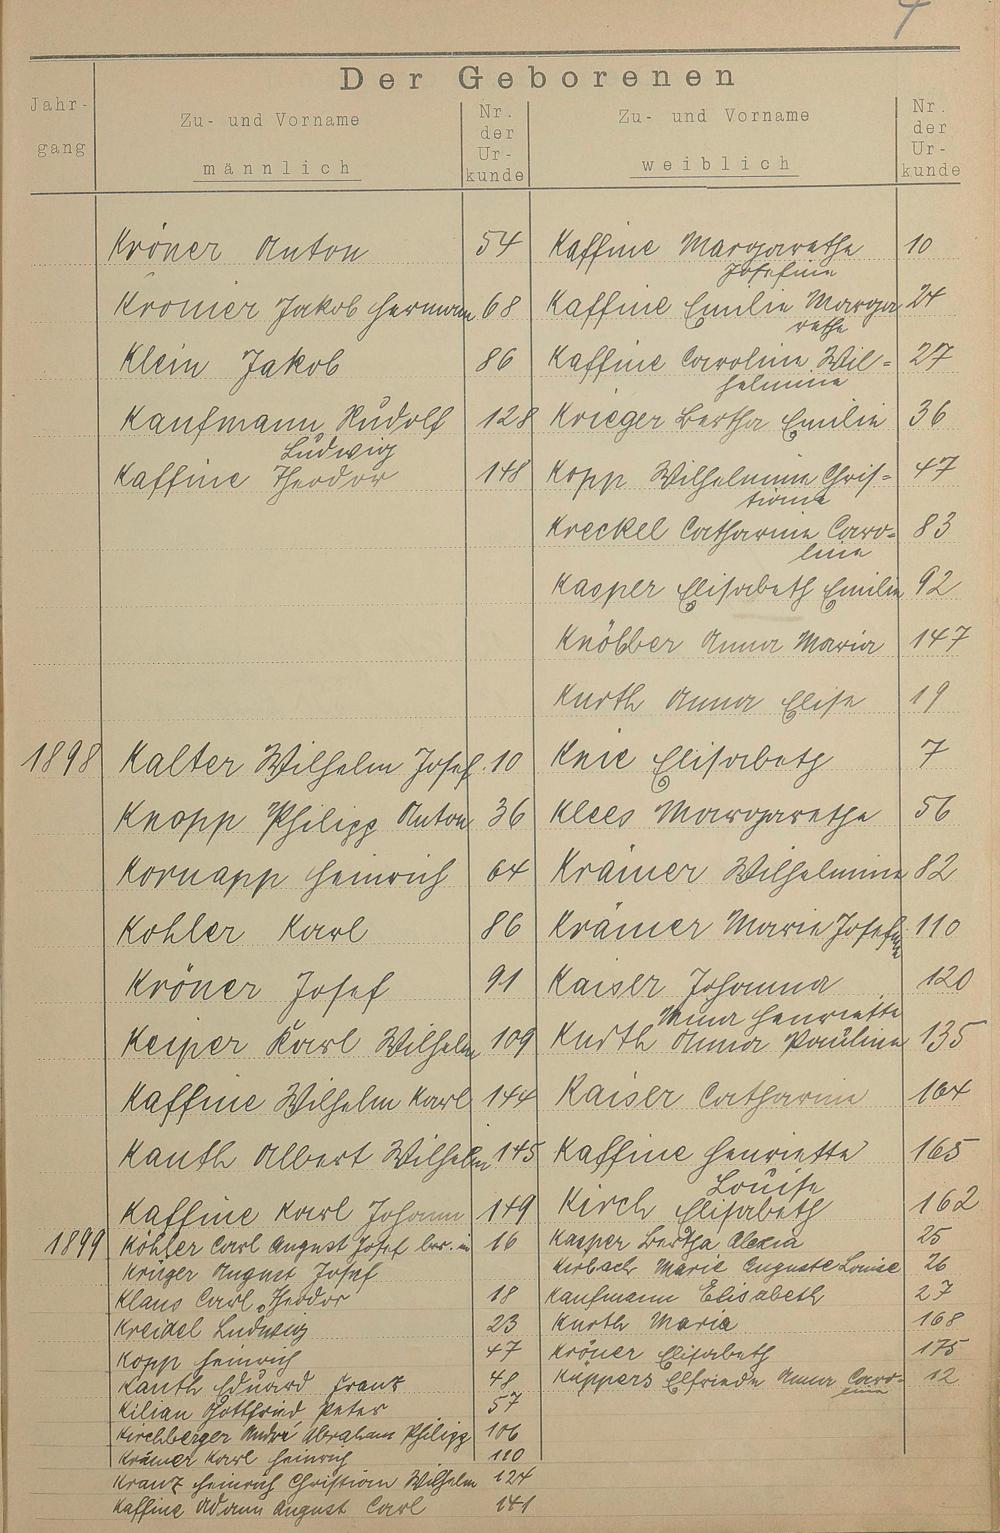 4
Der Geborenen
Jahr-
gang
Zu- und Vorname
männlich
Nr.
der
Ur-
kunde
Zu- und Vorname
weiblich
Nr.
der
Ur-
kunde
Kröner Anton 54 Kaffine Margarethe 10
Josefine
Kröner Jakob Hermann 68 Kaffine Emilie Marga 24
rethe
Klein Jakob 86 Kaffine Caroline Wil= 27
helmine
Kaufmann Rudolf 128 Krieger Bertha Emilie 36
Ludwig
Kaffine Theodor 148 Kopp Wilhelmine Chris= 47
tiane
Kreckel Catharine Caro= 83
line
Kasper Elisabeth Emilie 92
Knöbber Anna Maria 147
Kurth Anna Elise 19
1898 Kalter Wilhelm Josef 10 Knie Elisabeth 7
Knopp Philipp Anton 36 Klees Margarethe 56
Kornapp Heinrich 64 Krämer Wilhelmine 82
Kohler Karl 86 Krämer Marie Josefine 110
Kröner Josef 91 Kaiser Johanna 120
Mina Henriette
Keiper Karl Wilhelm 109 Kurth Anna Pauline 135
Kaffine Wilhelm Karl 144 Kaiser Catharine 164
Kauth Albert Wilhelm 145 Kaffine Henriette 165
Louise
Kaffine Karl Johann 149 Kirch Elisabeth 162
1899 Köhler Carl August Josef 16 Kasper Bertha Alexia 25
Krüger August Josef Kirbach Marie Auguste Louise 26
Klaus Carl Theodor 18 Kaufmann Elisabeth 27
Kreidel Ludwig 23 Kurth Maria 168
Kopp Heinrich 47 Kröner Elisabeth 175
Kauth Eduard Franz 48 Küppers Elfriede Anna Caro= 12
line
Kilian Gottfried Peter 57
Kirchberger André Abraham Philipp 106
Krämer Karl Heinrich 110
Kranz Heinrich Christian Wilhelm 124
Kaffine Adam August Carl 141